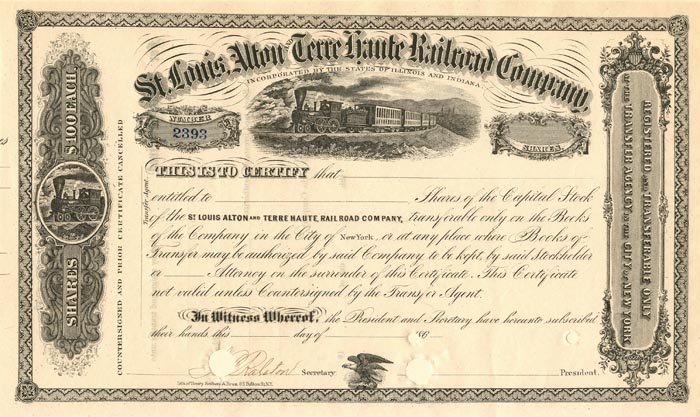 St. Louis, Alton AND Terre Haute Railroad Company,
INCORPORATED BY THE STATES OF ILLINOIS AND INDIANA
NUMBER
2393
SHARES.
SHARES $100 EACH
COUNTERSIGNED AND PRIOR CERTIFICATE CANCELLED
Transfer Agent
THIS IS TO CERTIFY that
entitled to Shares of the Capital Stock
of the ST. LOUIS ALTON AND TERRE HAUTE, RAIL ROAD COMPANY, transferable only on the Books
of the Company in the City of New York, or at any place where Books of
Transfer may be authorized by said Company to be kept, by said Stockholder
or Attorney on the surrender of this Certificate. This Certificate
not valid unless Countersigned by the Transfer Agent.
In Witness Whereof, the President and Secretary have hereunto subscribed
their hands this day of 186
Ralston Secretary
President.
REGISTERED AND TRANSFERABLE ONLY
AT THE TRANSFER AGENCY IN THE CITY OF NEW YORK